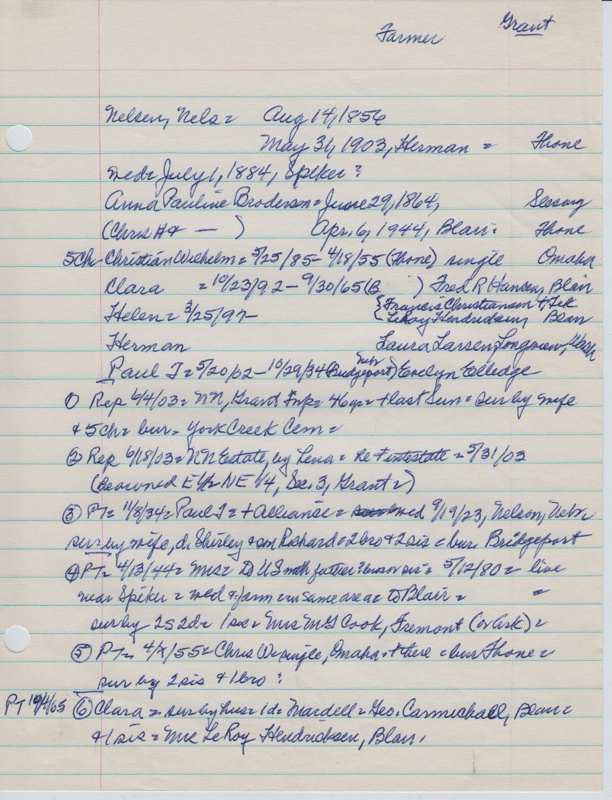 Farmer Grant
Nelsen, Nels = Aug 14, 1856
May 31, 1903, Herman = Fhone
wed = July 1, 1884, Spiker?
Anna Pauline Brodersen = June 29, 1864,
(Chris H & — ) Apr. 6, 1944, Blair = Fhone
5ch Christian Wilhelm = 5/25/85 - 4/18/55 (Fhone) single Omaha
Clara = 10/23/92 - 9/30/65 (B ) Fred R Hansen, Blair
Helen = 3/25/97 - {Francis Christiansen +, Tek
{LeRoy Hendricksen, Blair
Herman Laura Larsen, Longview, Wash
Paul T = 5/20/02 - 10/29/34 (Bridgeport Nebr) Evelyn Elledge
① Rep 6/4/03 = NN, Grant Twp = 46 yr = + last Sun = sur by wife
& 5ch = bur = York Creek Cem =
② Rep 6/18/03 = NN Estate, by Lena = Re = 5/31/03
(Be owned E 1/2 NE 1/4, Sec. 3, Grant =)
③ PT = 11/8/34 = Paul T = + Alliance = wed 9/19/23, Nelson, Nebr
sur by wife, d. Shirley & son Richard = 2 bro & 2 sis = bur Bridgeport
④ PT = 4/13/44 = Mrs = to US = 5/12/80 = live
near Spiker = wed & farm in same area = to Blair = "
sur by 2s 2d = 1 sis = Mrs M G Cook, Fremont (or Ark) =
⑤ PT = 4/ /55 = Chris W = single, Omaha + there = bur Fhone =
sur by 2 sis & 1 bro?
PT 10/4/65 ⑥ Clara = sur by hus = 1d = Mardell = Geo. Carmichael, Blair =
& 1 sis = Mrs LeRoy Hendricksen, Blair.